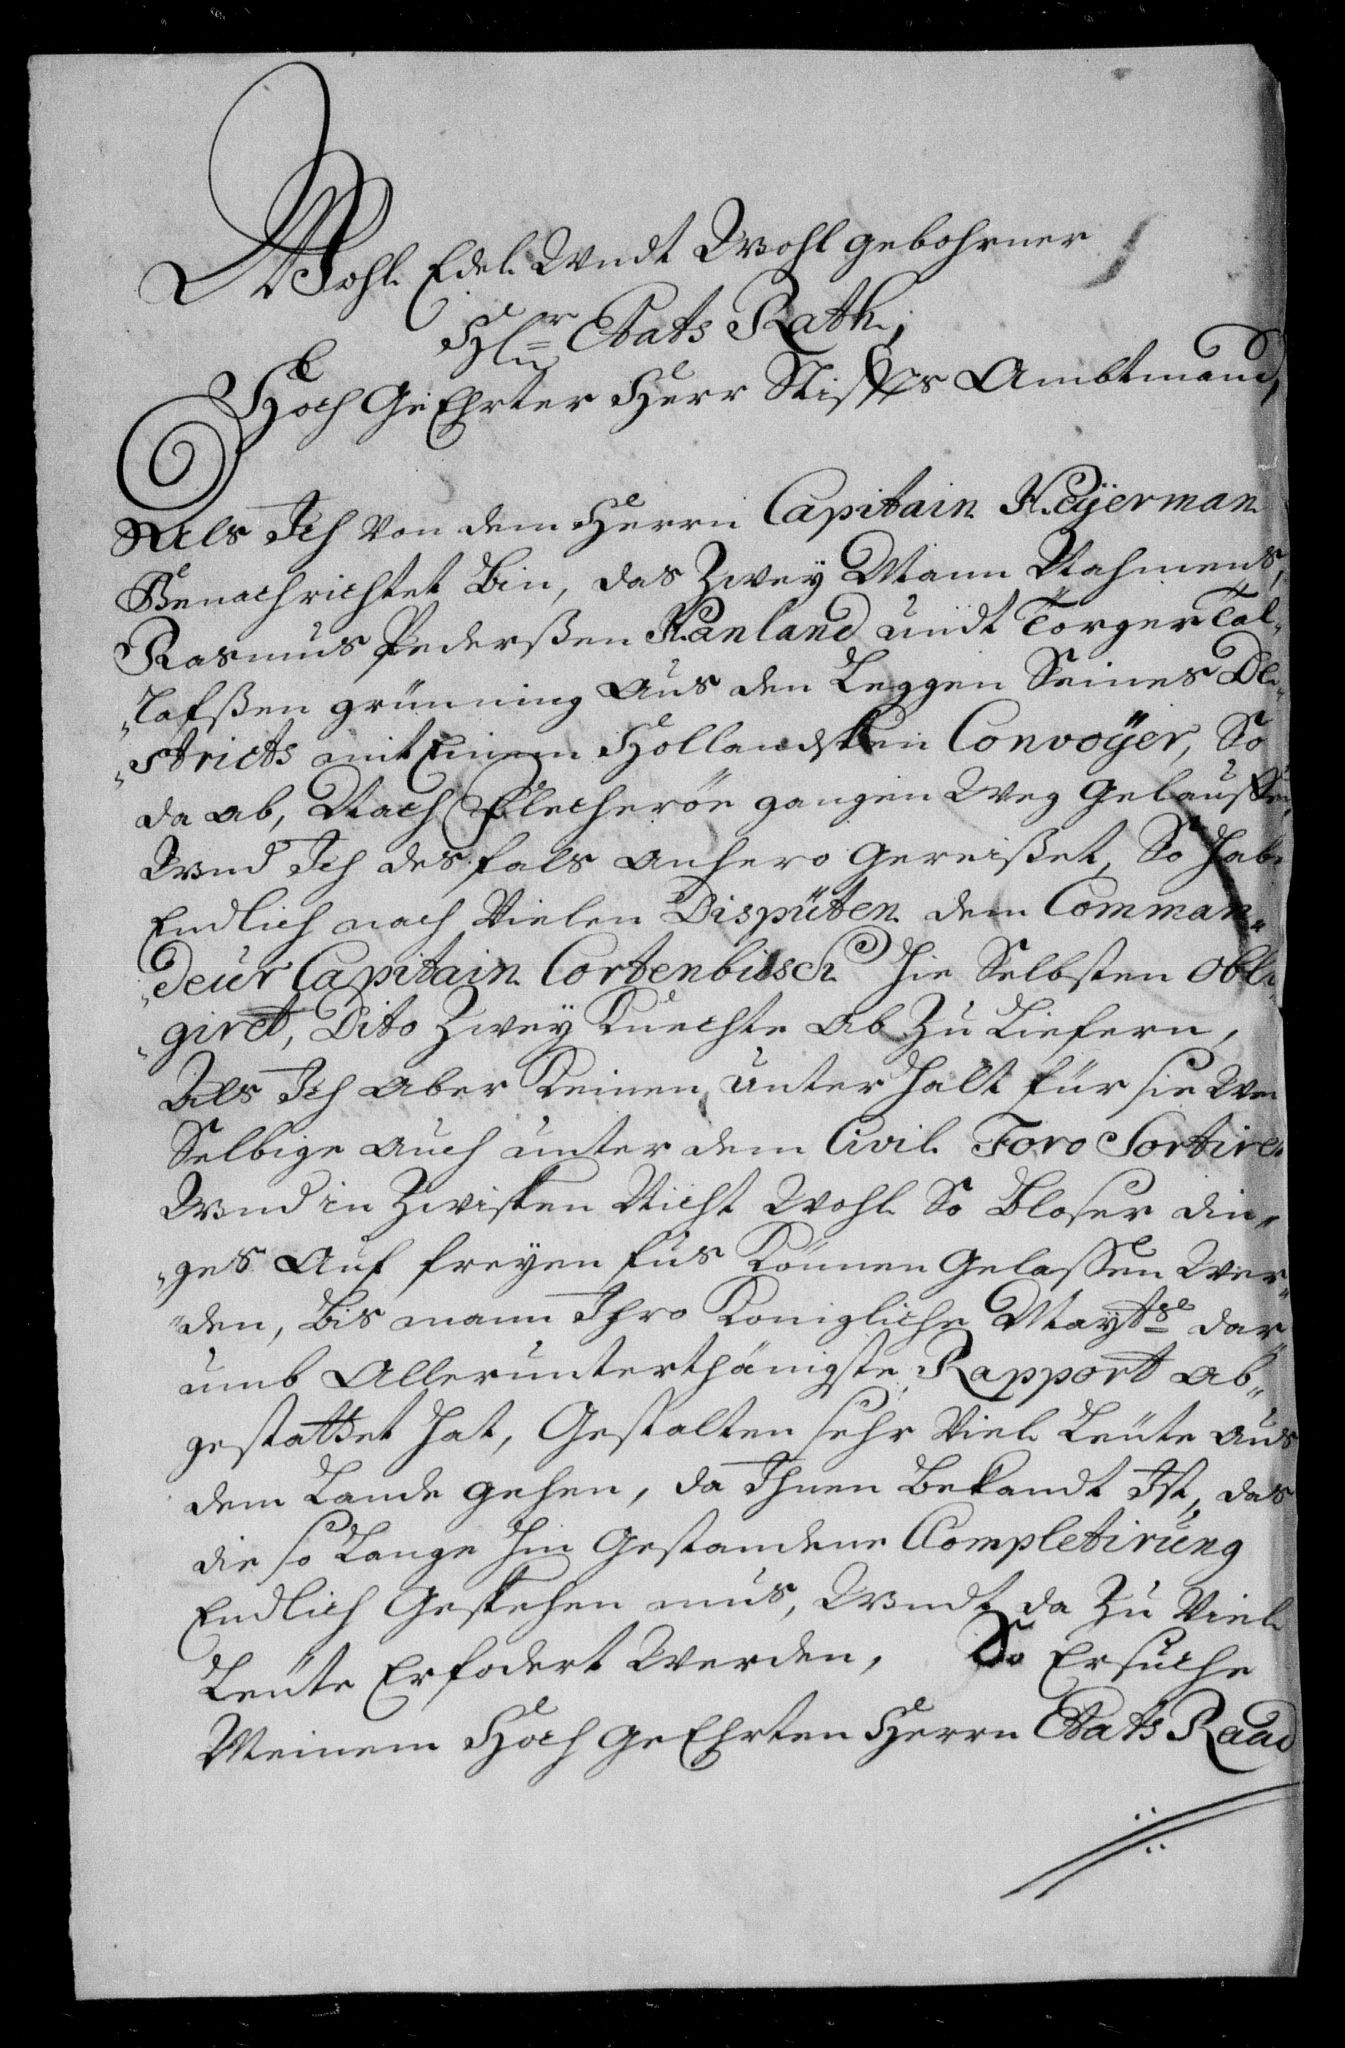 Wohl Edel Undt Wohl gebohrner
Hr Etats Rath,
Hoch Geehrter Herr Stiffts Ambtmand,
Als Ich von dem Herrn Capitain Heÿerman
Benachrichtet bin, das Zweÿ Mann Nahmens,
Rasmus Pederßen Hanland undt Torger Tol„
„lafßen grünning aus den Leggen Seines Di„
„stricts mit Einem Hollandschen Convoÿer, So
da ab, Nach Flecherøe gangen Weg Gelauffen,
Und Ich desfals anhero gereißet, So habe
Endlich nach Vielen Dispüten dem Comman„
„deur Capitain Cortenbosch hie Selbsten obli„
„giret, Dito Zweÿ Knechte ab Zu Liefern,
Als Ich aber Keinen unterhalt für sie
Selbige auch unter dem Civil Foro Sortire
Und in Zwischen Nicht Wohl So Bloser din„
„ges Auf freÿen fus Können Gelassen Wer„
„den, bis mann Ihro Königliche Maÿtse dar„
umb Allerunterthänigste Rapport ab„
gestattet hat, Gestalten sehr Viel Leüte aus
dem Lande gehen, da Ihnen bekandt Ist, das
die so Lange hin Gestandene Completirüng
Endlich Geschehen mus, Undt da Zu Viel
Leüte Erfodert Werden, So Ersuche
Meinem Hoch GeEhrten Herrn Etats Raad